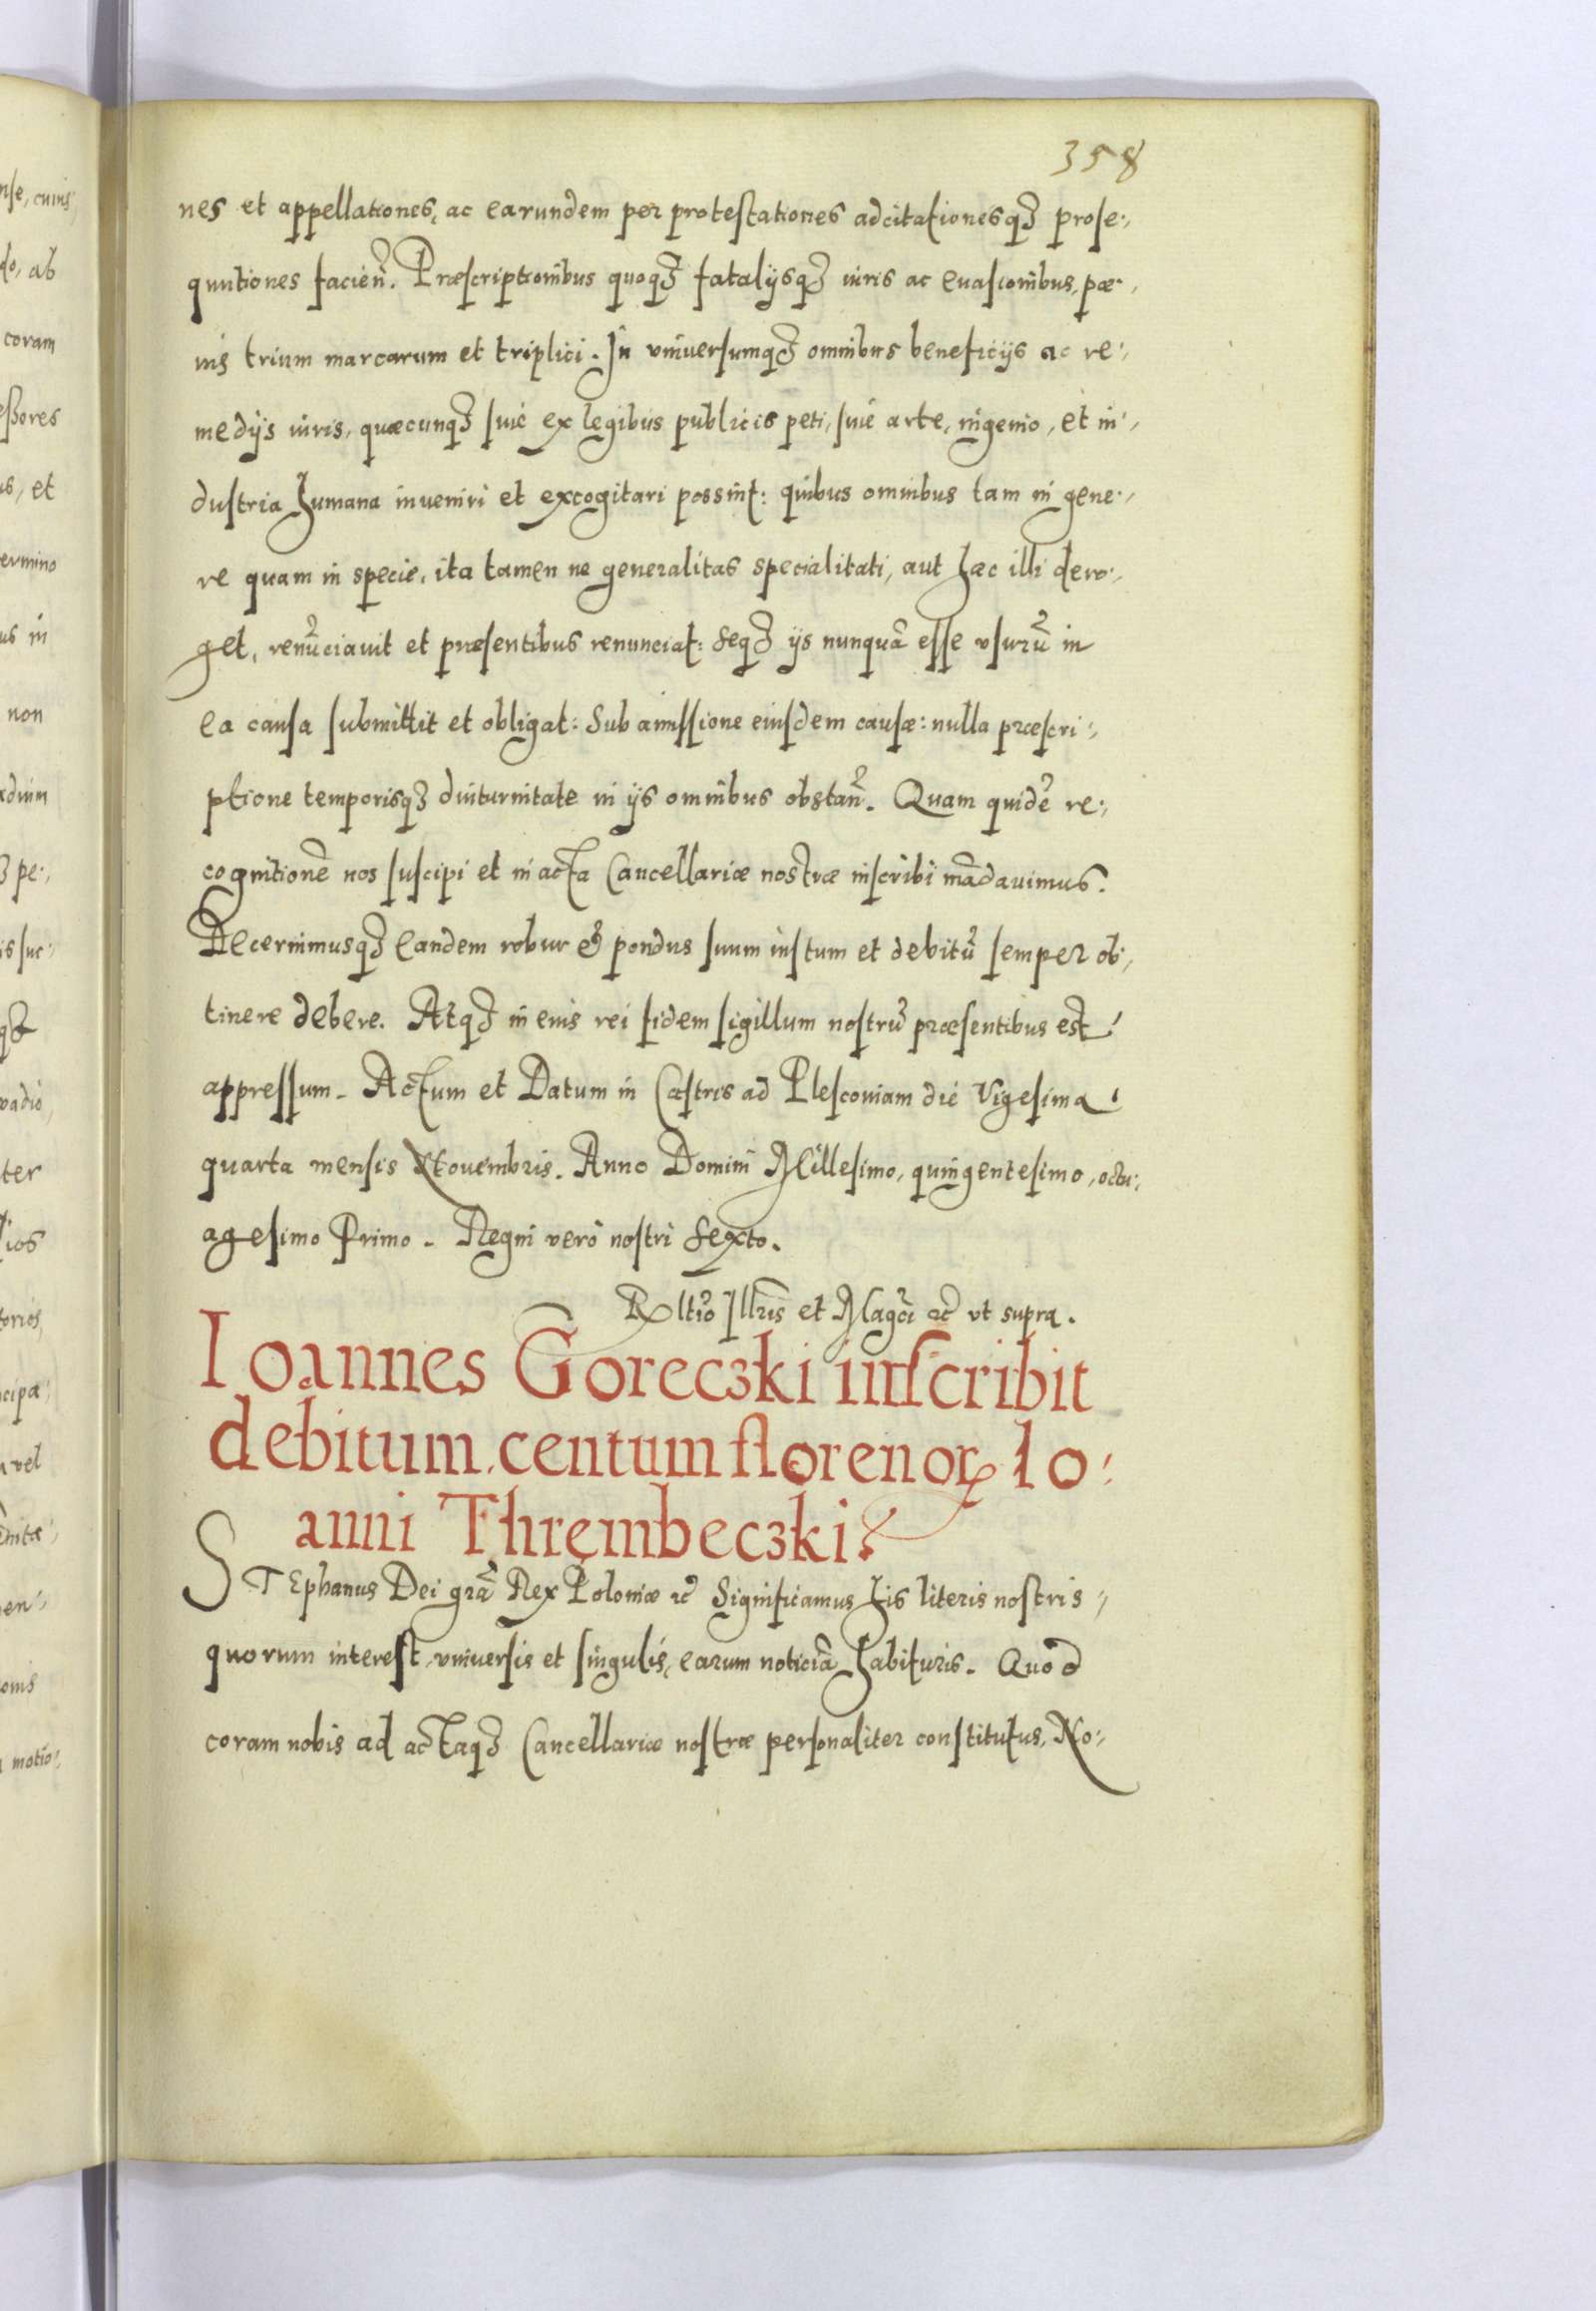 358
nes et appellationes, ac earundem per protestationes adcitationesqȝ prose:,
quutiones facien̄. Præscriptionibus quoqȝ fatalijsqȝ iuris ac euasionibus, pæ:,
nis trium marcarum et triplici. In vniuersumqȝ omnibus beneficijs ac re:,
medijs iuris, quæcunqȝ siue ex legibus publicis peti, siue arte, ingenio, et in:,
dustria humana inueniri et excogitari possint: quibus omnibus tam in gene:,
re quam in specie, ita tamen ne generalitas specialitati, aut hæc illi dero:,
get, renūciauit et præsentibus renunciat: seqȝ ijs nunquā esse vsurū in
ea causa submittit et obligat: Sub amissione eiusdem causæ: nulla præscri:,
ptione temporisqȝ diuturnitate in ijs omnibus obstan̄. Quam quidē re:,
cognitionē nos suscipi et in acta Cancellariæ nostræ inscribi mādauimus.
Decernimusqȝ eandem robur et pondus suum iustum et debitū semper ob:,
tinere debere. Atqȝ in eius rei fidem sigillum nostrū præsentibus est
appressum. Actum et Datum in Castris ad Plescouiam die Vigesima
quarta mensis Nouembris. Anno Domini Millesimo, quingentesimo, octu:,
agesimo Primo. Regni vero nostri Sexto.
Rltio Illris et Magci ec vt supra.
Ioannes Goreczki inscribit
debitum centum florenoꝝ Io:
anni Thrembeczki.
STEphanus Dei grā Rex Poloniæ ec Significamus his literis nostris,
quorum interest, vniuersis et singulis, earum noticiā habituris. Quod
coram nobis ad actaqȝ Cancellariæ nostræ personaliter constitutus, No:,
nse, cuius
do, ab
coram
eßores
us, et
ermino
us in
non
pe:,
is suc:
vadio
ter
lios
torios
cipa:
vel
en:,
onis
motio:,